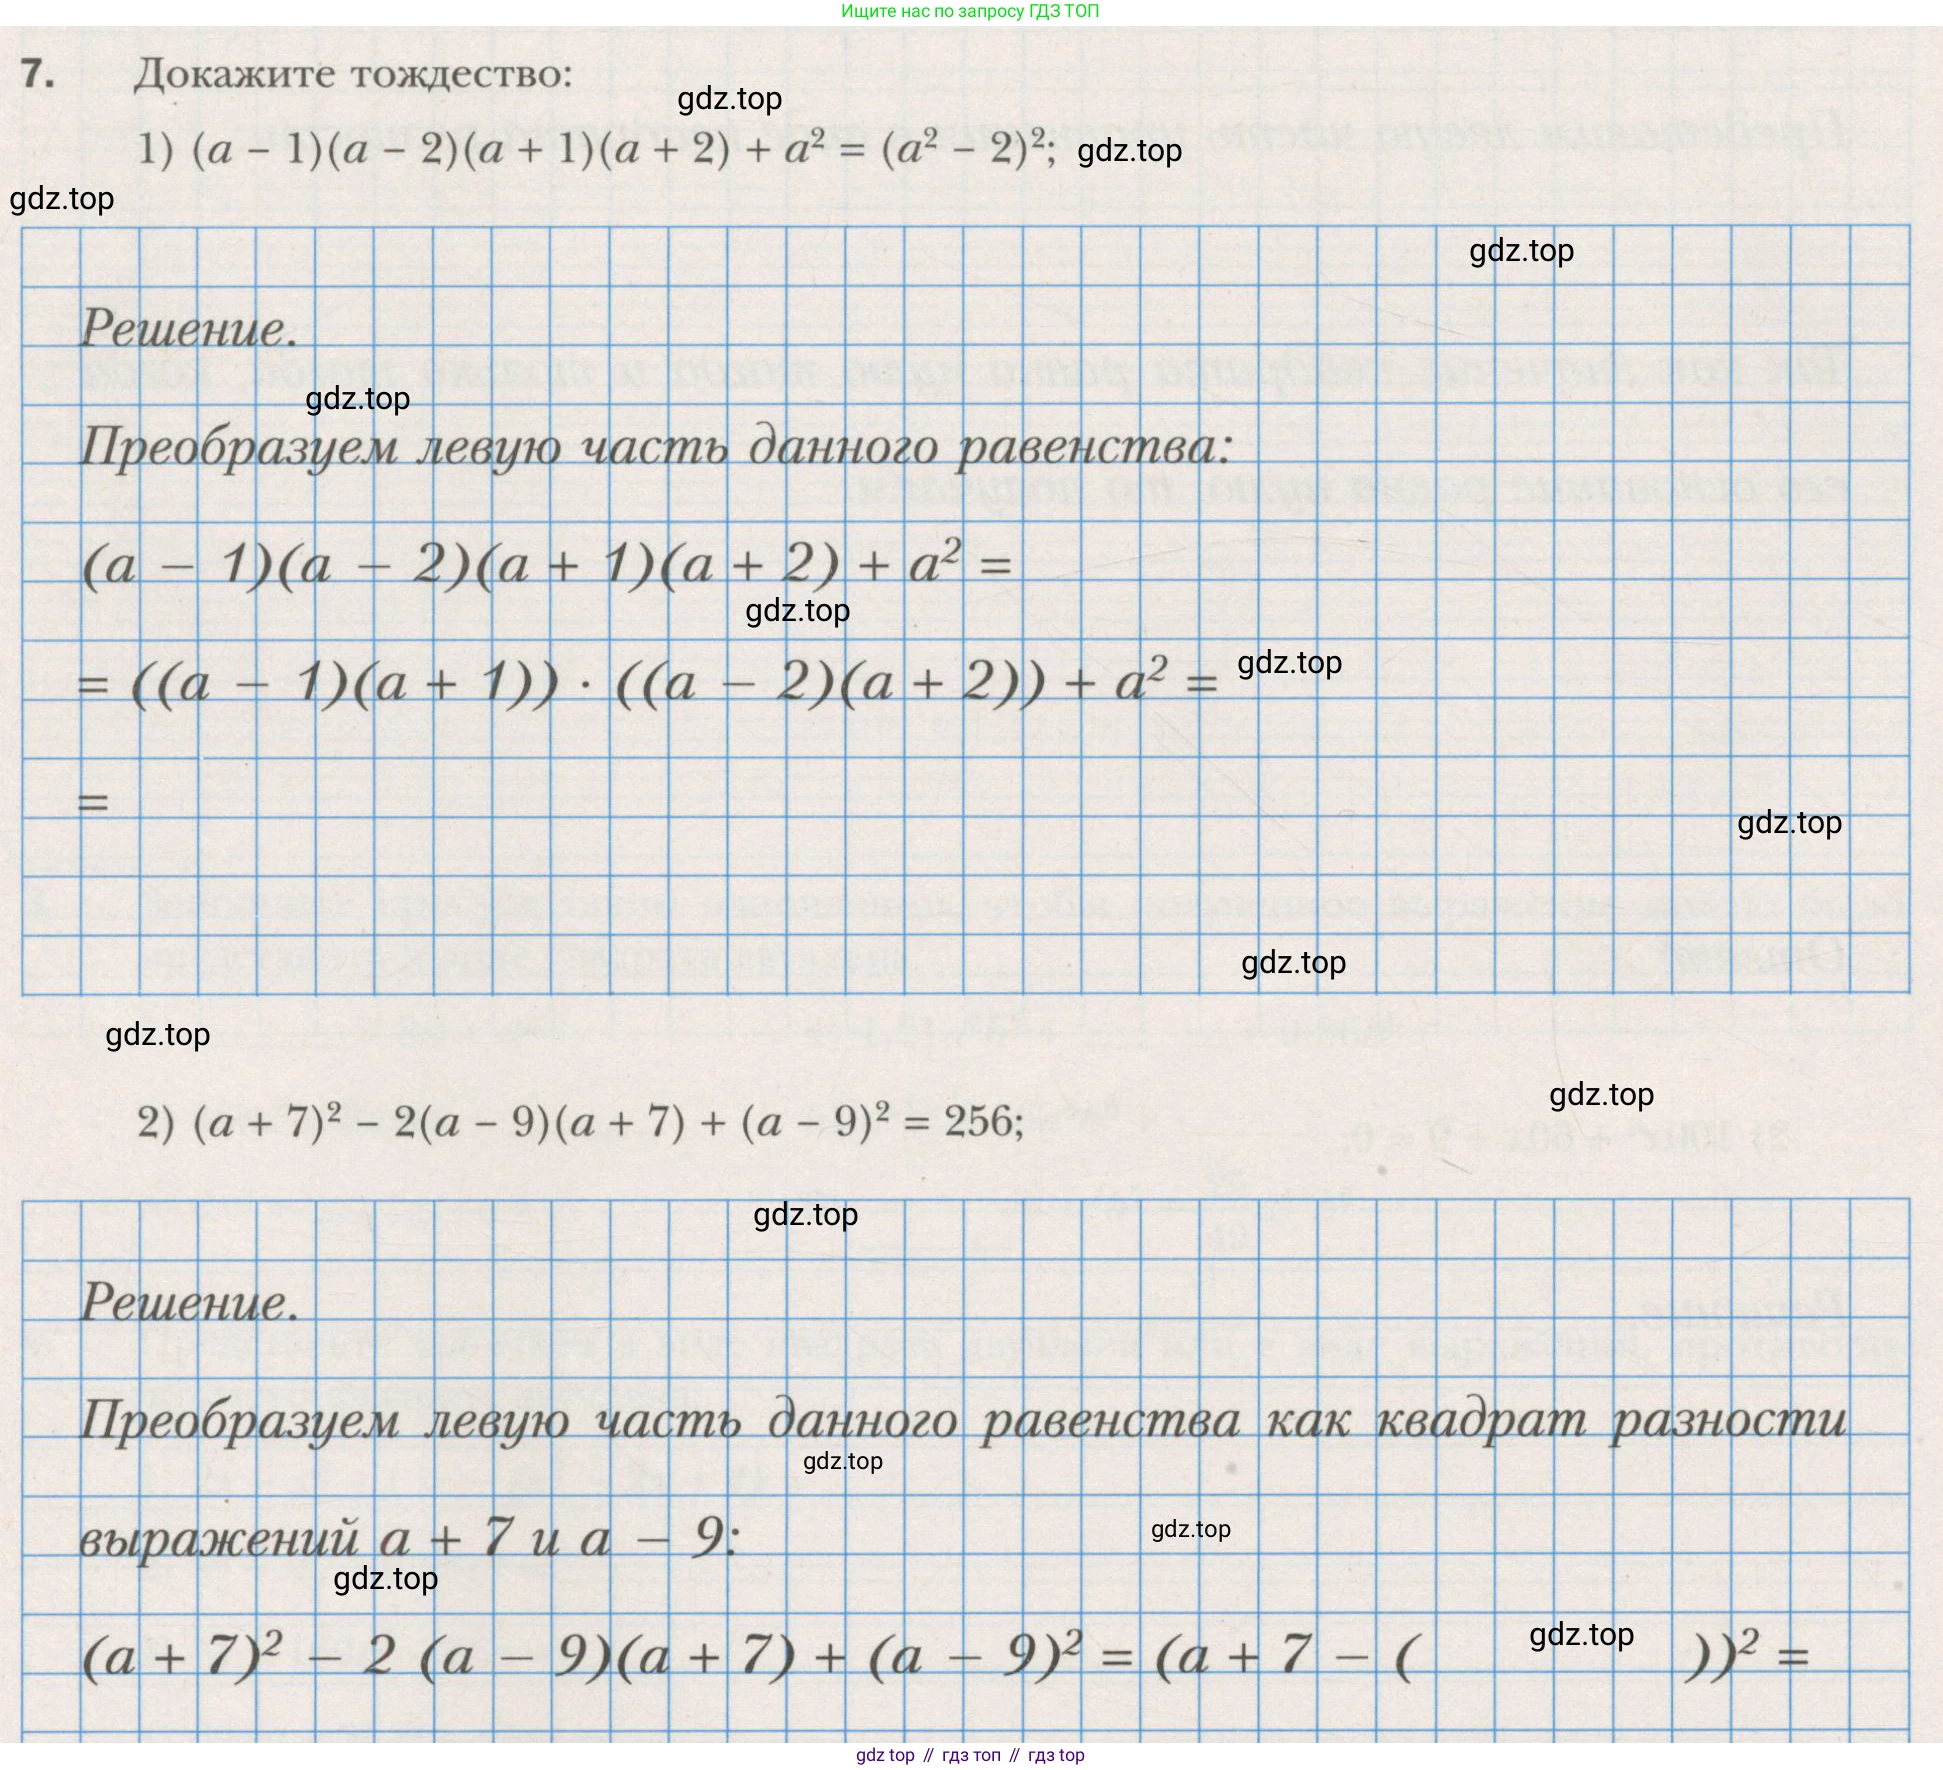 Ищите нас по запросу ГДЗ ТОП
7. Докажите тождество:
gdz.top
1) (a − 1)(a − 2)(a + 1)(a + 2) + a² = (a² − 2)²; gdz.top
gdz.top
gdz.top
Решение.
gdz.top
Преобразуем левую часть данного равенства:
(a − 1)(a − 2)(a + 1)(a + 2) + a² =
gdz.top
= ((a − 1)(a + 1)) · ((a − 2)(a + 2)) + a² = gdz.top
=
gdz.top
gdz.top
gdz.top
gdz.top
2) (a + 7)² − 2(a − 9)(a + 7) + (a − 9)² = 256;
gdz.top
Решение.
Преобразуем левую часть данного равенства как квадрат разности
gdz.top
выражений a + 7 и a − 9:
gdz.top
gdz.top
(a + 7)² − 2 (a − 9)(a + 7) + (a − 9)² = (a + 7 − ( gdz.top ))² =
gdz top // гдз топ // гдз top